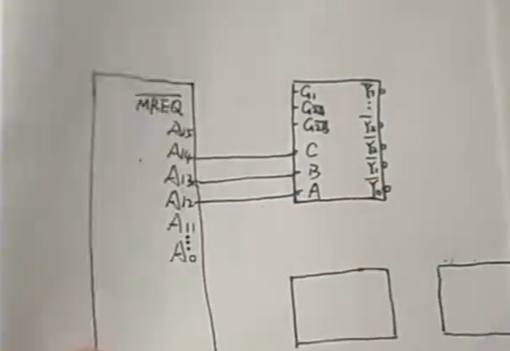 M̅R̅E̅Q̅
A15
A14
A13
A12
A11
⋮
A0
G1
G2A
G2B
C
B
A
Y̅7
⋮
Y̅3
Y̅2
Y̅1
Y̅0